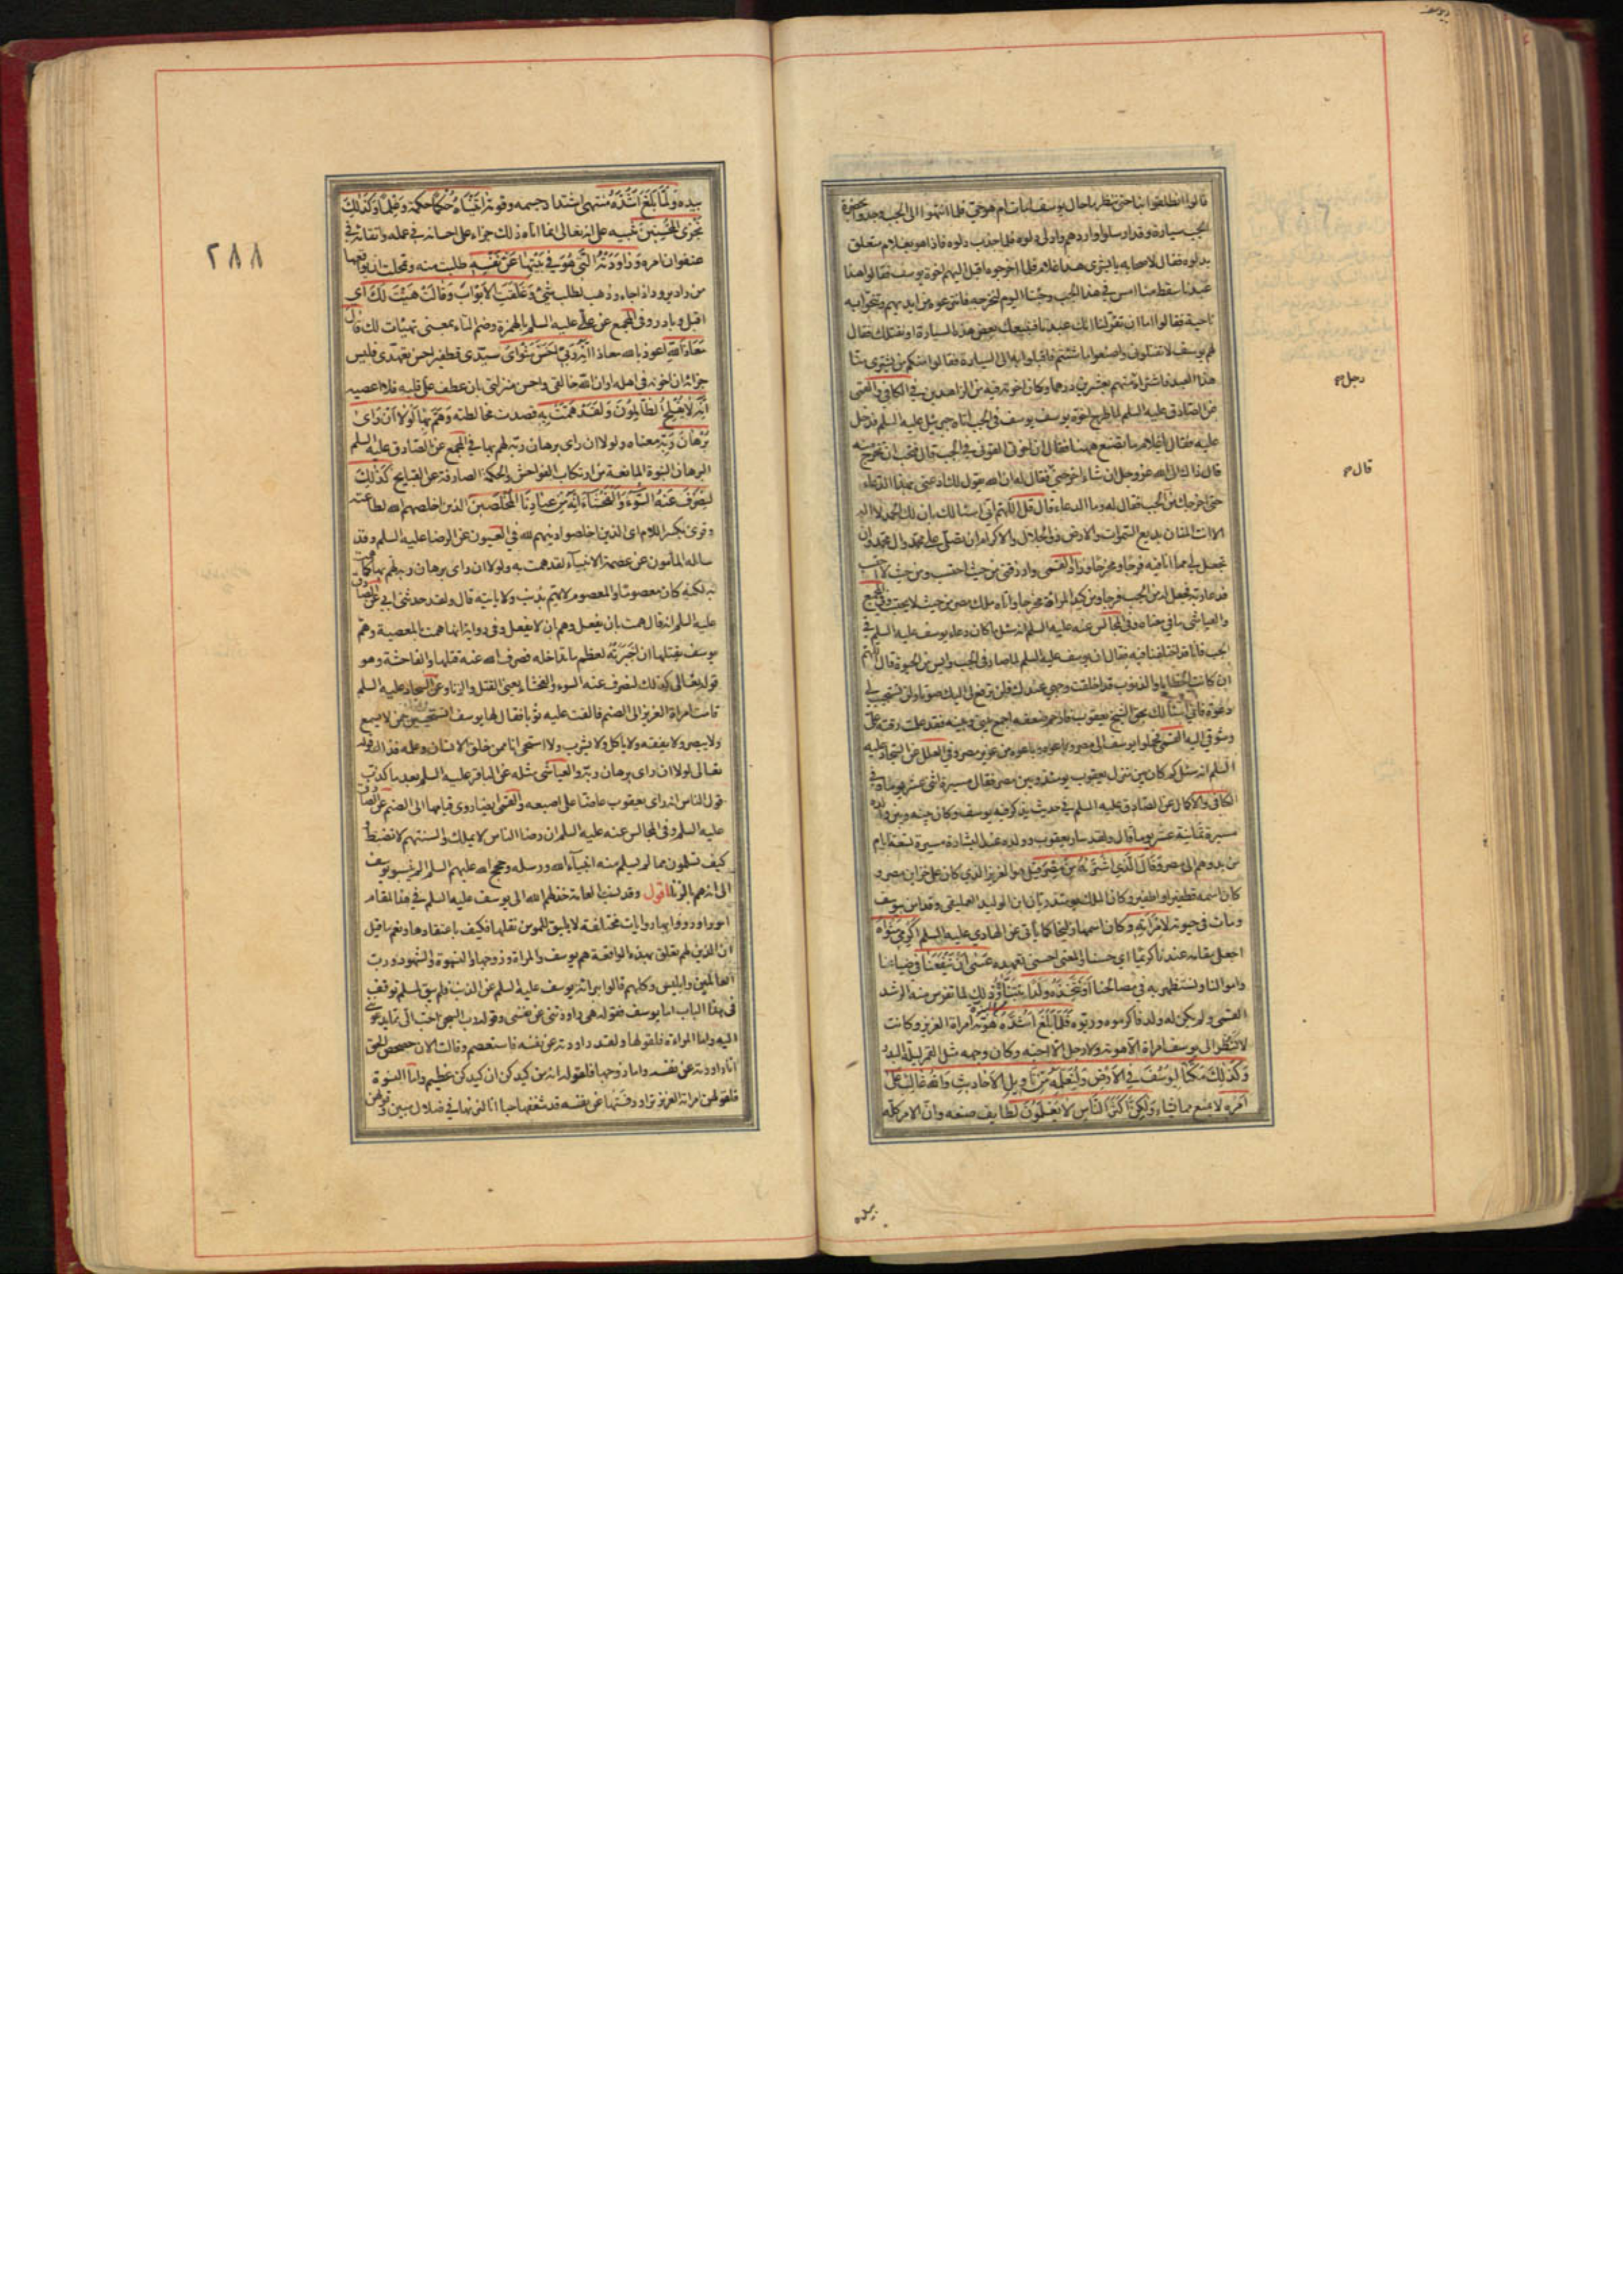 يوسف
قالوا انطلقوا بنا حتى ننظر ما حال يوسف امات ام هو حي فلما انتهوا الى الجب وجدوا بحضرة
الجب سيارة وقد ارسلوا واردهم وادلى دلوه فلما جذب دلوه فاذا هو بغلام متعلق
بدلوه فقال لاصحابه يا بشرى هذا غلام فلما اخرجوه اقبل اليهم اخوة يوسف فقالوا هذا
عبدنا سقط منا امس في هذا الجب وجئنا اليوم لنخرجه فانتزعوه من ايديهم وتنحوا به
ناحية فقالوا اما ان تقر لنا انك عبد لنا فنبيعك بعض هذه السيارة او نقتلك فقال
لهم يوسف لا تقتلوني واصنعوا ما شئتم فاقبلوا به الى السيارة فقالوا امنكم من يشتري منا
هذا العبد فاشتراه منهم بعشرين درهما وكان اخوته فيه من الزاهدين في الكافي والقمي
رجل صح
عن الصادق عليه السلم لما طرح اخوة يوسف يوسف في الجب اتاه جبرئيل عليه السلم فدخل
عليه فقال يا غلام ما تصنع ههنا فقال ان اخوتي القوني في الجب قال فتحب ان تخرج منه
قال صح
قال ذاك الى الله عز وجل ان شاء اخرجني فقال له ان الله يقول لك ادعني بهذا الدعاء
حتى اخرجك من الجب فقال له وما الدعاء قال قل اللهم اني اسئالك بان لك الحمد لا اله
الا انت المنان بديع السموات والارض ذو الجلال والاكرام ان تصلي على محمد وال محمد وان
تجعل لي مما انا فيه فرجا ومخرجا وزاد القمي وارزقني من حيث احتسب ومن حيث لا احتسب
فدعا ربه فجعل له من الجب فرجا ومن كيد المراة مخرجا واتاه ملك مصر من حيث لا يحتسب وفي المجمع
والعياشي ما في معناه وفي المجالس عنه عليه السلم انه سئل ما كان دعاء يوسف عليه السلم في
الجب فانا قد اختلفنا فيه فقال ان يوسف عليه السلم لما صار في الجب وايس من الحيوة قال اللهم
ان كانت الخطايا والذنوب قد اخلقت وجهي عندك فلن ترفع لي اليك صوتا ولن تستجيب لي
دعوة فاني اسئالك بحق الشيخ يعقوب فارحم ضعفه واجمع بيني وبينه فقد علمت رقته علي
وشوقي اليه القمي فحملوا يوسف الى مصر وباعوه من عزيز مصر وفي العلل عن السجاد عليه
السلم انه سئل كم كان بين منزل يعقوب يومئذ وبين مصر فقال مسيرة اثني عشر يوما وفي
الكافي والاكمال عن الصادق عليه السلم في حديث يذكر فيه يوسف وكان بينه وبين والده
مسيرة ثمانية عشر يوما قال ولقد سار يعقوب وولده عند البشارة مسيرة تسعة ايام
من بدوهم الى مصر وقال الذي اشتريه من مصر قيل هو العزيز الذي كان على خزاين مصر و
كان اسمه قطفير او اطفير وكان الملك يومئذ ريان ابن الوليد العمليقي وقد امن بيوسف
ومات في حيوته لامراته وكان اسمها زليخا كما ياتي عن الهادي عليه السلم اكرمي مثواه
اجعلي مقامه عندنا كريما اي حسنا والمعنى احسني تعهده عسى ان ينفعنا في ضياعنا
واموالنا ونستظهر به في مصالحنا او نتخذه ولدا نتبناه وذلك لما تفرس منه الرشد
القمي ولم يكن له ولد فاكرموه وربوه فلما بلغ اشده هوته امراة العزيز وكانت
لا تنظر الى يوسف امراة الا هوته ولا رجل الا احبه وكان وجهه مثل القمر ليلة البدر
وكذلك مكنا ليوسف في الارض ولنعلمه من تاويل الاحاديث والله غالب على
امره لا يمنع مما يشاء ولكن اكثر الناس لا يعلمون لطايف صنعه وان الامر كله
بيده
٢٨٨
بيده ولما بلغ اشده منتهى اشتداد جسمه وقوته اتيناه حكما حكمة وعلما وكذلك
نجزي المحسنين تنبيه على انه تعالى انما اتاه ذلك جزاء على احسانه في عمله واتقائه في
عنفوان امره وراودته التي هو في بيتها عن نفسه طلبت منه وتمحلت ان يواقعها
من راد يرود اذا جاء وذهب لطلب شيء وغلقت الابواب وقالت هيت لك اي
اقبل وبادر وفي المجمع عن علي عليه السلم بالهمزة وضم التاء بمعنى تهيئات لك قال
معاذ الله اعوذ بالله معاذا انه ربي احسن مثواي سيدي قطفير احسن تعهدي فليس
جزائه ان اخونه في اهله او ان الله خالقي واحسن منزلتي بان عطف علي قلبه فلا اعصيه
انه لا يفلح الظالمون ولقد همت به قصدت مخالطته وهم بها لولا ان راى
برهان ربه معناه ولولا ان راى برهان ربه لهم بها في المجمع عن الصادق عليه السلم
البرهان النبوة المانعة من ارتكاب الفواحش والحكمة الصارفة عن القبايح كذلك
لنصرف عنه السوء والفحشاء انه من عبادنا المخلصين الذين اخلصهم الله لطاعته
وقرئ بكسر اللام اي الذين اخلصوا دينهم لله في العيون عن الرضا عليه السلم وقد
ساله المأمون عن عصمة الانبياء لقد همت به ولولا ان راى برهان ربه لهم بها كما همت
به لكنه كان معصوما والمعصوم لا يهم بذنب ولا ياتيه قال ولقد حدثني ابي عن الصادق
عليه السلم انه قال همت بان يفعل وهم ان لا يفعل وفي رواية انها همت بالمعصية وهم
يوسف بقتلها ان اجبرته لعظم ما تداخله فصرف الله عنه قتلها والفاحشة وهو
قوله تعالى كذلك لنصرف عنه السوء والفحشاء يعني القتل والزنا وعن السجاد عليه السلم
قامت امراة العزيز الى الصنم فالقت عليه ثوبا فقال لها يوسف اتستحيين ممن لا يسمع
ولا يبصر ولا يفقه ولا ياكل ولا يشرب ولا استحي انا ممن خلق الانسان وعلمه فذلك قوله
تعالى لولا ان راى برهان ربه والعياشي مثله عن الباقر عليه السلم بعد ما كذب
قول الناس انه راى يعقوب عاضا على اصبعه والقمي ايضا روى قيامها الى الصنم عن الصادق
عليه السلم وفي المجالس عنه عليه السلم ان رضا الناس لا يملك والسنتهم لا تضبط
كيف تسلمون مما لم يسلم منه انبياء الله ورسله وحجج الله عليهم السلم الم ينسبوا يوسف
الى انه هم بالزنا اقول وقد نسبت العامة خذلهم الله الى يوسف عليه السلم في هذا المقام
امورا ورووا بها روايات مختلفة لا يليق للمومن نقلها فكيف باعتقادها ونعم ما قيل
ان الذين لهم تعلق بهذه الواقعة هم يوسف والمراة وزوجها والنسوة والشهود ورب
العالمين وابليس وكلهم قالوا ببرائة يوسف عليه السلم عن الذنب فلم يبق لمسلم توقف
في هذا الباب اما يوسف فقوله هي راودتني عن نفسي وقوله رب السجن احب الي مما يدعونني
اليه واما المراة فلقولها ولقد راودته عن نفسه فاستعصم وقالت الان حصحص الحق
انا راودته عن نفسه واما زوجها فلقوله انه من كيدكن ان كيدكن عظيم واما النسوة
فلقولهن امراة العزيز تراود فتيها عن نفسه قد شغفها حبا انا لنريها في ضلال مبين وقولهن